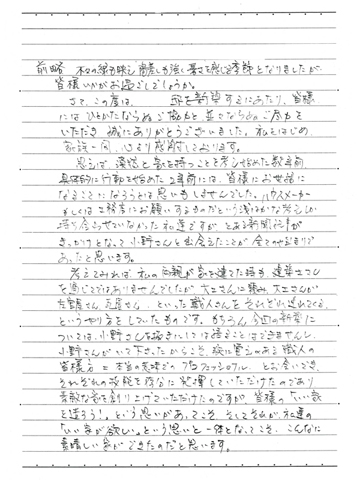 前略 木々の緑も映え、陽差しも強く暑さを感じる季節となりましたが、
皆様いかがお過ごしでしょうか。
さて、この度は、 邸を新築するにあたり、皆様
にはひとかたならぬご協力と並々ならぬご尽力を
いただき誠にありがとうございました。私をはじめ、
家族一同、心より感謝しております。
思えば、漠然と家を持つことを考え始めた数年前
具体的に行動を始めた2年前には、皆様にお世話に
なることになろうとは思いもしませんでした。ハウスメーカー
もしくは工務店にお願いするものだという浅はかな考えしか
持ち合わせていなかった私達ですが、とある新聞記事が
きっかけとなって小野さんと出会えたことが全ての始まりで
あったと思います。
考えてみれば、私の両親が家を建てた時も、建築士さん
を通じてではありませんでしたが、大工さんに頼み、大工さんが
左官屋さん、瓦屋さん、といった職人さんをそれぞれ連れてくる
というやり方をしていたものです。もちろん今回の新築に
ついては、小野さんを抜きにしては語ることはできませんし、
小野さんがいて下さったからこそ、
皆様方＝本当の意味での"プロフェッショナル"とお会いでき、
それぞれの技能を存分に発揮していただけたのであり
素敵な家を創り上げていただけたのですが、皆様の「いい家
を造ろう！」という思いがあってこそ、そしてそれが、私達の
「いい家が欲しい。」という思いと一体となってこそ、こんなに
素晴しい家ができたのだと思います。